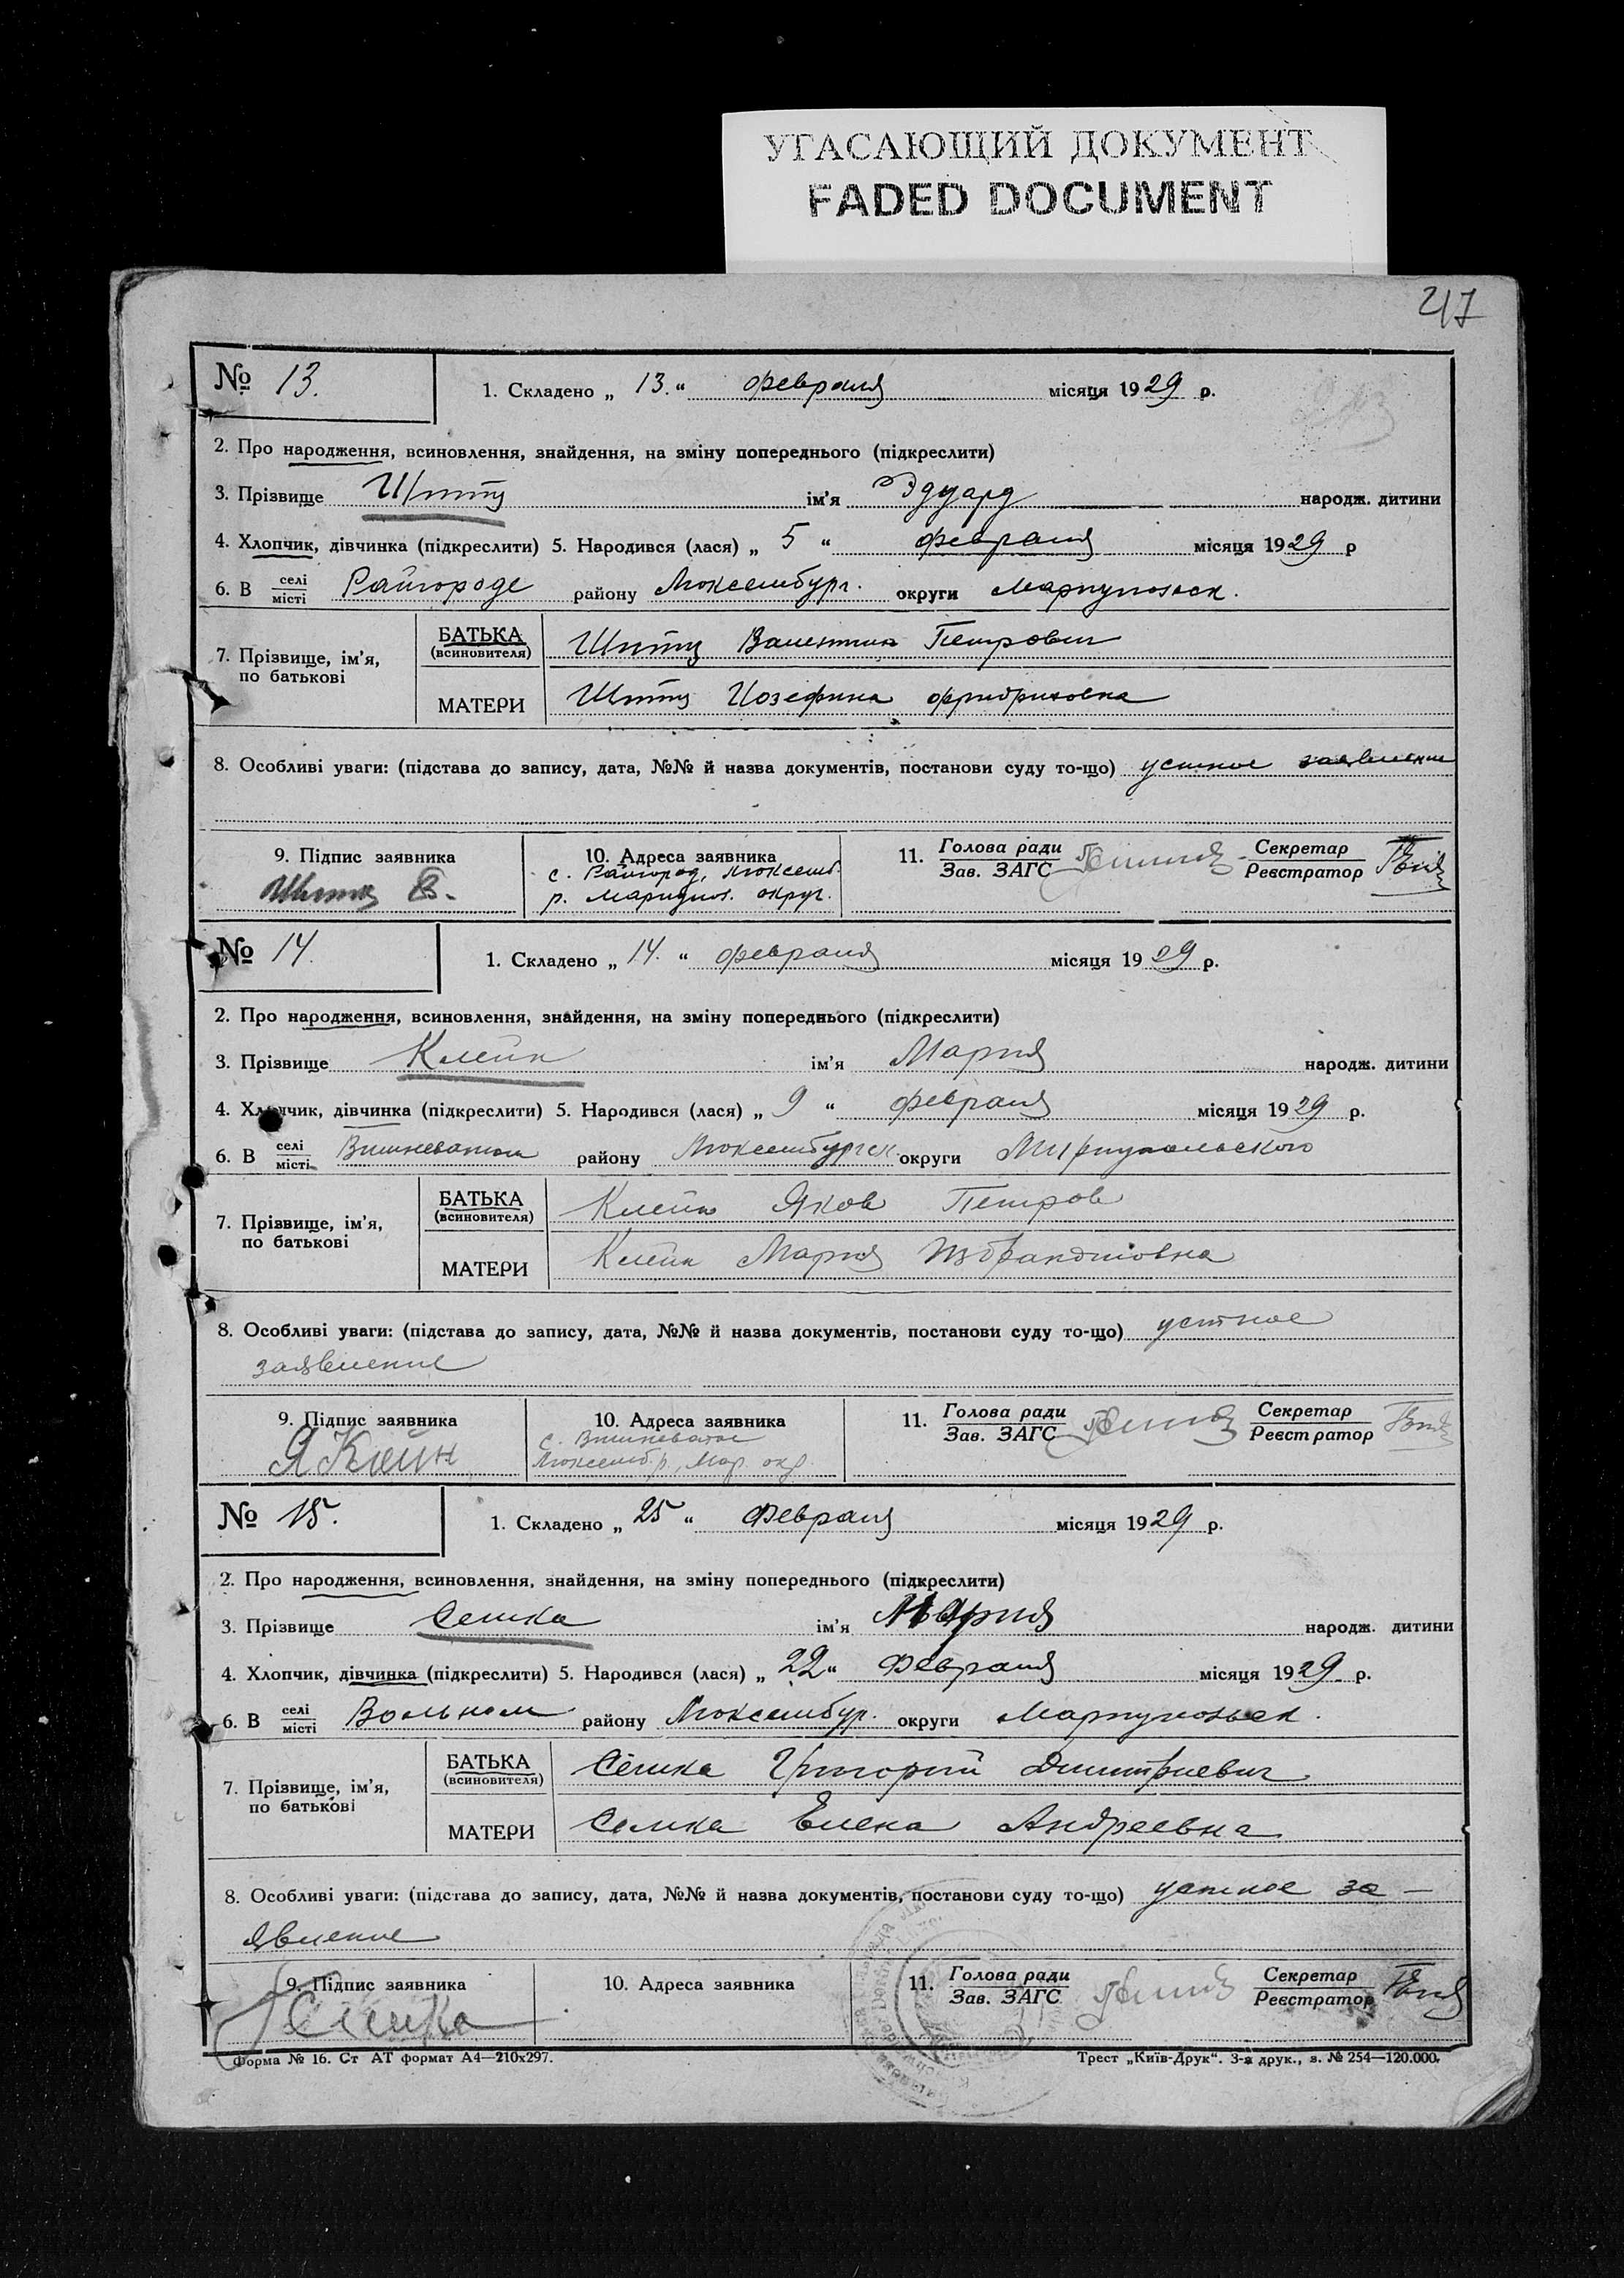 УГАСАЮЩИЙ ДОКУМЕНТ
FADED DOCUMENT
217
№ 13. 1. Складено „ 13. “ февраля місяця 1929 р.
2. Про народження, всиновлення, знайдення, на зміну попереднього (підкреслити)
3. Прізвище Шпитц ім'я Эдуард народж. дитини
4. Хлопчик, дівчинка (підкреслити) 5. Народився (лася) „ 5 “ февраля місяця 1929 р
6. В селі місті Райгороде району Люксембург. округи Мариупольск.
7. Прізвище, ім'я, по батькові
БАТЬКА (всиновителя) Шпитц Валентин Петрович
МАТЕРИ Шпитц Иозефина Фридриховна
8. Особливі уваги: (підстава до запису, дата, №№ й назва документів, постанови суду то-що) устное заявление
9. Підпис заявника
10. Адреса заявника
11. Голова ради Зав. ЗАГС Секретар Реєстратор
с. Райгород, Люксемб.
р. Мариупол. округ.
№ 14. 1. Складено „ 14. “ февраля місяця 1929 р.
2. Про народження, всиновлення, знайдення, на зміну попереднього (підкреслити)
3. Прізвище Клейн ім'я Мария народж. дитини
4. Хлопчик, дівчинка (підкреслити) 5. Народився (лася) „ 9 “ февраля місяця 1929 р.
6. В селі місті Вишневатом району Люксембургск. округи Мариупольского
7. Прізвище, ім'я, по батькові
БАТЬКА (всиновителя) Клейн Яков Петров
МАТЕРИ Клейн Мария Избрандтовна
8. Особливі уваги: (підстава до запису, дата, №№ й назва документів, постанови суду то-що) устное
заявление
9. Підпис заявника
10. Адреса заявника
11. Голова ради Зав. ЗАГС Секретар Реєстратор
Я Клейн
с. Вишневатое
Люксемб. р., Мар. окр.
№ 15. 1. Складено „ 25 “ Февраля місяця 1929 р.
2. Про народження, всиновлення, знайдення, на зміну попереднього (підкреслити)
3. Прізвище Семка ім'я Мария народж. дитини
4. Хлопчик, дівчинка (підкреслити) 5. Народився (лася) „ 22 “ Февраля місяця 1929 р.
6. В селі місті Вольном району Люксембур. округи Мариупольск.
7. Прізвище, ім'я, по батькові
БАТЬКА (всиновителя) Семка Григорий Дмитриевич
МАТЕРИ Семка Елена Андреевна
8. Особливі уваги: (підстава до запису, дата, №№ й назва документів, постанови суду то-що) устное за-
явление
9. Підпис заявника
10. Адреса заявника
11. Голова ради Зав. ЗАГС Секретар Реєстратор
Семка
Форма № 16. Ст АТ формат А4—210х297.
Трест „Київ-Друк“. 3-я друк., з. № 254—120.000.